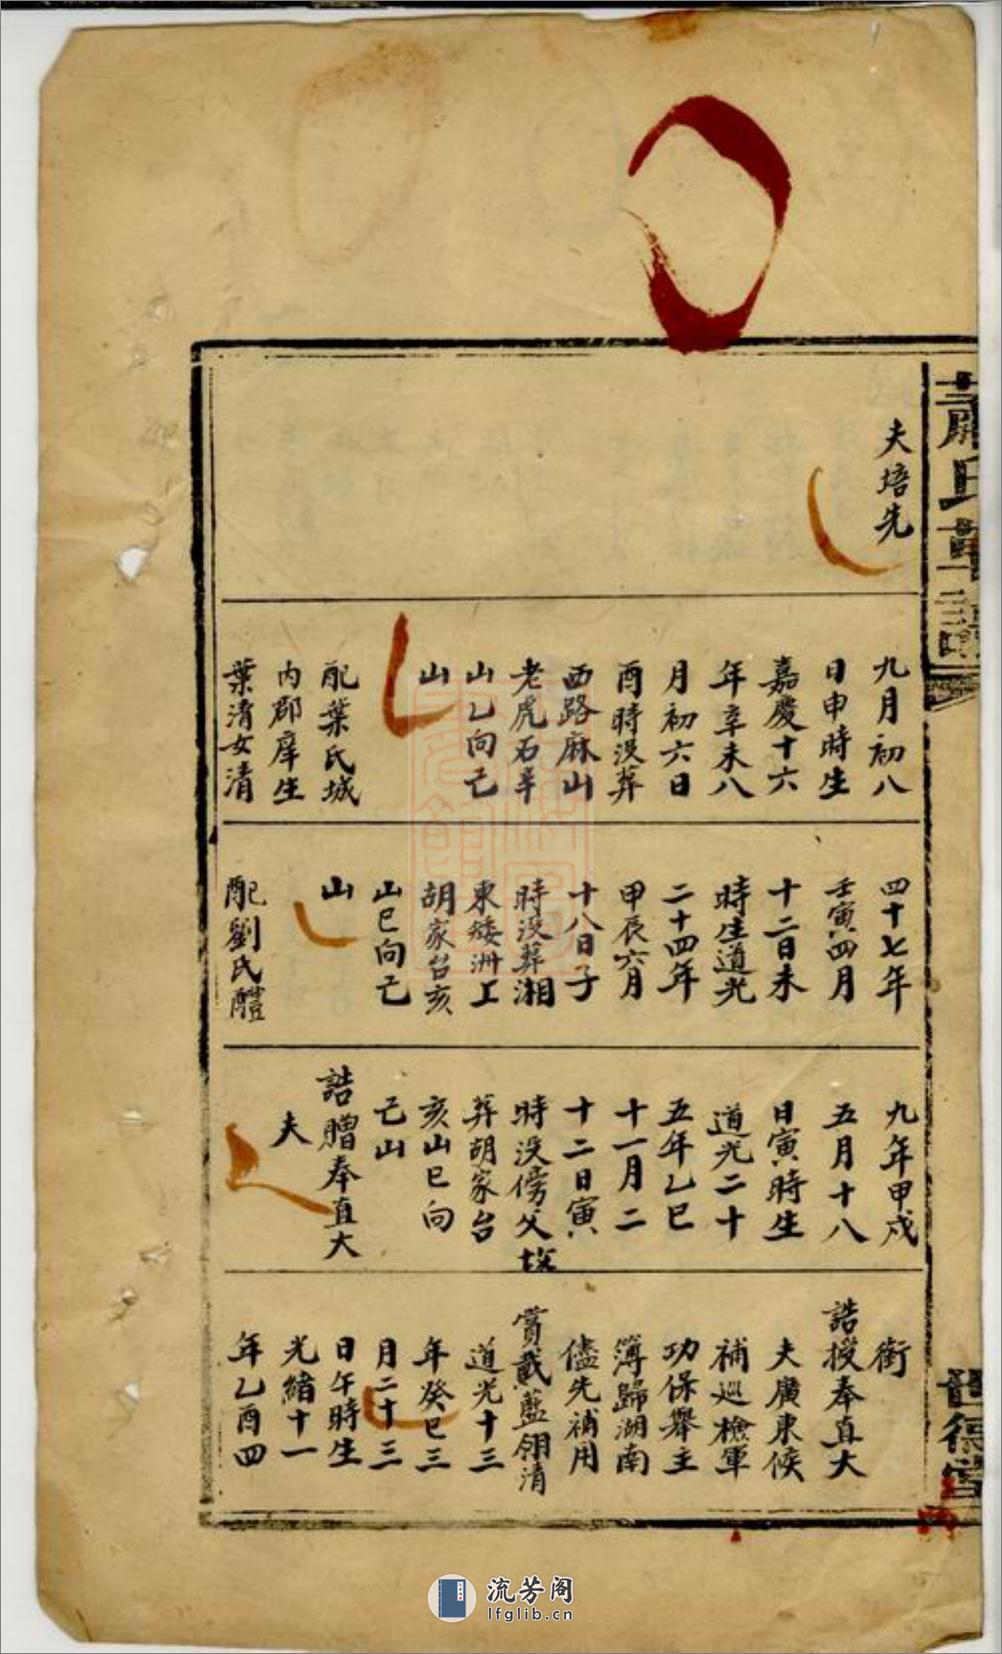 蕭氏草譜
夫培先
九月初八
日申時生
嘉慶十六
年辛未八
月初六日
酉時沒葬
西路麻山
老虎石辛
山乙向己
山
配葉氏城
內郡庠生
葉清女清
四十七年
壬寅四月
十二日未
時生道光
二十四年
甲辰六月
十八日子
時沒葬湘
東矮洲工
胡家台亥
山巳向己
山
配劉氏醴
九年甲戌
五月十八
日寅時生
道光二十
五年乙巳
十一月二
十二日寅
時沒傍父墳
葬胡家台
亥山巳向
己山
誥贈奉直大
夫
銜
誥授奉直大
夫廣東候
補巡檢軍
功保舉主
簿歸湖南
儘先補用
賞戴藍翎清
道光十三
年癸巳三
月二十三
日午時生
光緒十一
年乙酉四
流芳阁
lfglib.cn